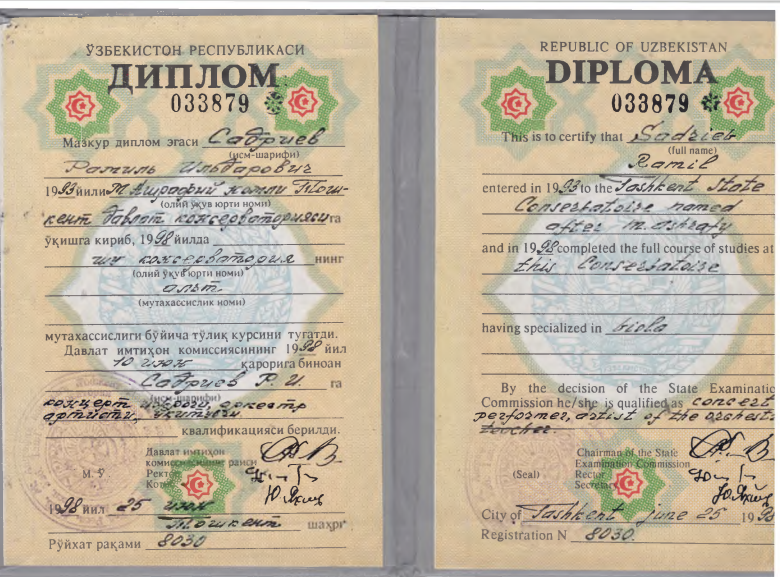 ЎЗБЕКИСТОН РЕСПУБЛИКАСИ
ДИПЛОМ
033879
Мазкур диплом эгаси Садриев
(исм-шарифи)
Рамиль Ильдарович
1993 йили М. Ашрафий номли Тош-
(олий ўқув юрти номи)
кент давлат консерваториясига
ўқишга кириб, 1998 йилда
шу консерватория нинг
(олий ўқув юрти номи)
альт
(мутахассислик номи)
мутахассислиги бўйича тўлиқ курсини тугатди.
Давлат имтиҳон комиссиясининг 1998 йил
10 июн қарорига биноан
Садриев Р. И. га
(исм-шарифи)
концерт ижрочи, оркестр
артисти, ўқитувчи
квалификацияси берилди.
Давлат имтиҳон
комиссиясининг раиси
М. Ў.
Ректор
Котиб
1998 йил 25 июн
Тошкент шаҳри
Рўйхат рақами 8030
REPUBLIC OF UZBEKISTAN
DIPLOMA
033879
This is to certify that Sadriev
(full name)
Ramil
entered in 1993 to the Tashkent State
Conservatoire named
after M. Ashrafy
and in 1998 completed the full course of studies at
this Conservatoire
having specialized in viola
By the decision of the State Examinatio
Commission he/she is qualified as concert
performer, artist of the orchestr
teacher
Chairman of the State
Examination Commission
(Seal)
Rector
Secretary
City of Tashkent june 25 1998
Registration N 8030.